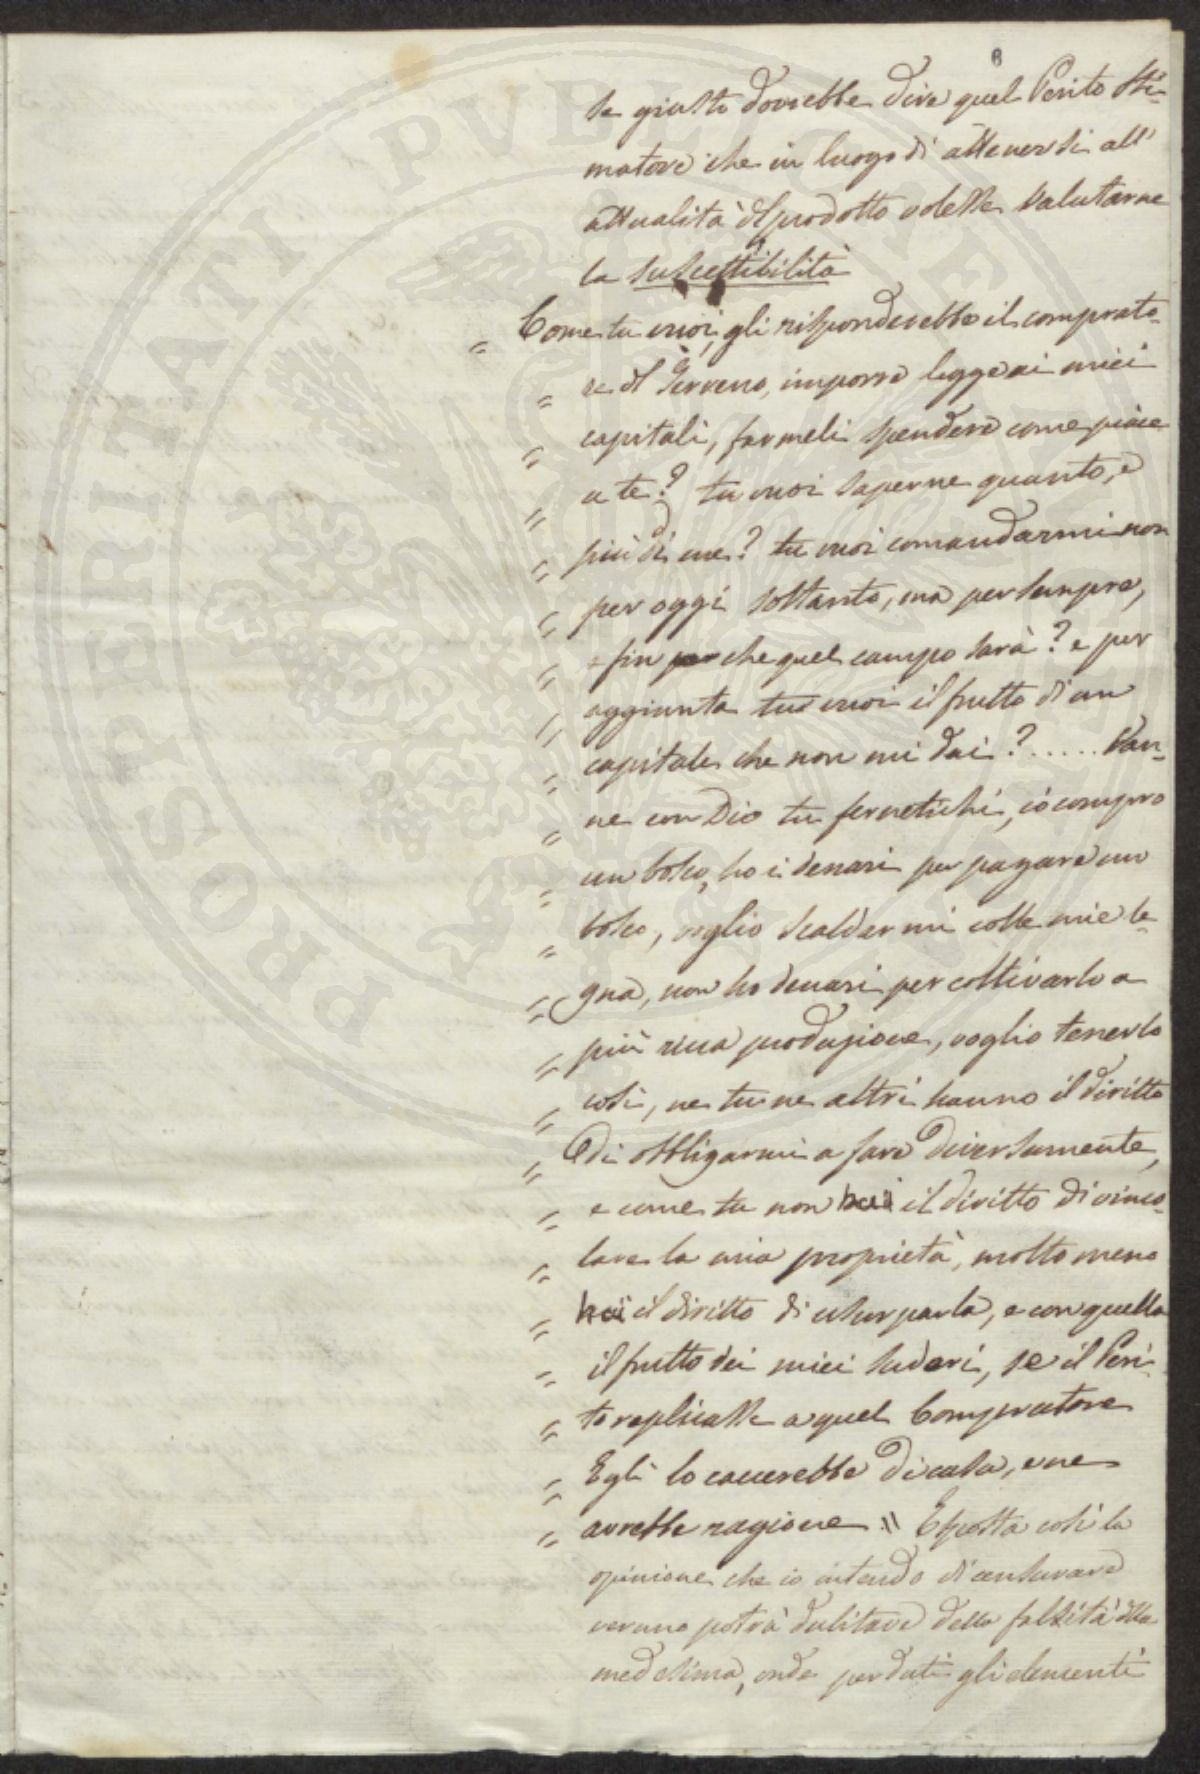 8
se giusto dovrebbe dire quel Perito Sti-
matore che in luogo di attenersi all'
attualità del prodotto volesse valutarne
la suscettibilità
" Come tu vuoi, gli risponderebbe il comprato-
" re del Terreno, imporre legge ai miei
" capitali, farmeli spendere come piace
" a te? tu vuoi saperne quanto, e
" più di me? tu vuoi comandarmi non
" per oggi soltanto, ma per sempre,
" e fin che quel campo sarà? e per
" aggiunta tu vuoi il frutto di un
" capitale che non mi dai?..... Van-
" ne con Dio tu fernetichi, io compro
" un bosco, ho i denari per pagare un
" bosco, voglio scaldarmi colle mie le-
" gna, non ho denari per coltivarlo a
" più ricca produzione, voglio tenerlo
" così, ne tu ne altri hanno il diritto
" di obbligarmi a fare diversamente,
" e come tu non hai il diritto di vinco-
" lare la mia proprietà, molto meno
" hai il diritto di usurparla, e con quella
" il frutto dei miei sudori, se il Peri-
" to replicasse a quel Compratore
" Egli lo caccerebbe di casa, e ne
" avrebbe ragione " Esposta così la
opinione che io intendo di censurare
veruno potrà dubitare della falsità della
medesima, onde perduti gli elementi
PROSPERITATI PUBLICAE